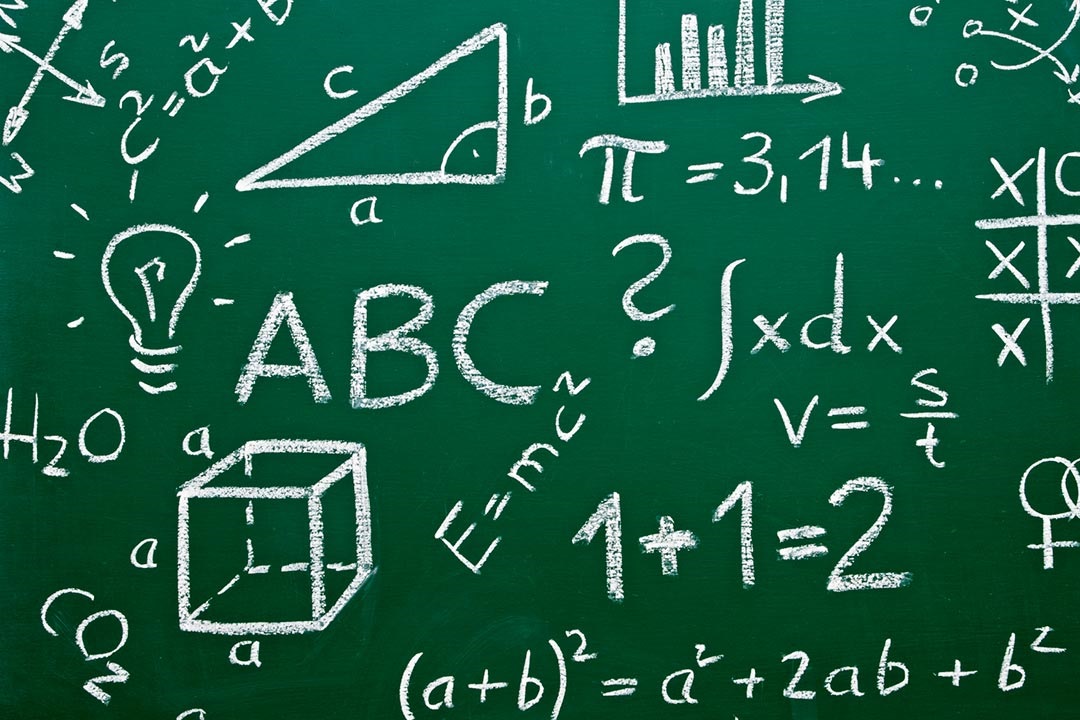 S
W
c² = a² × B
c
b
a
π = 3,14...
X O
X X
X
ABC
?
∫xdx
v = s/t
H₂O
a
a
a
E = mc²
1+1=2
CO₂
(a+b)² = a² + 2ab + b²
a